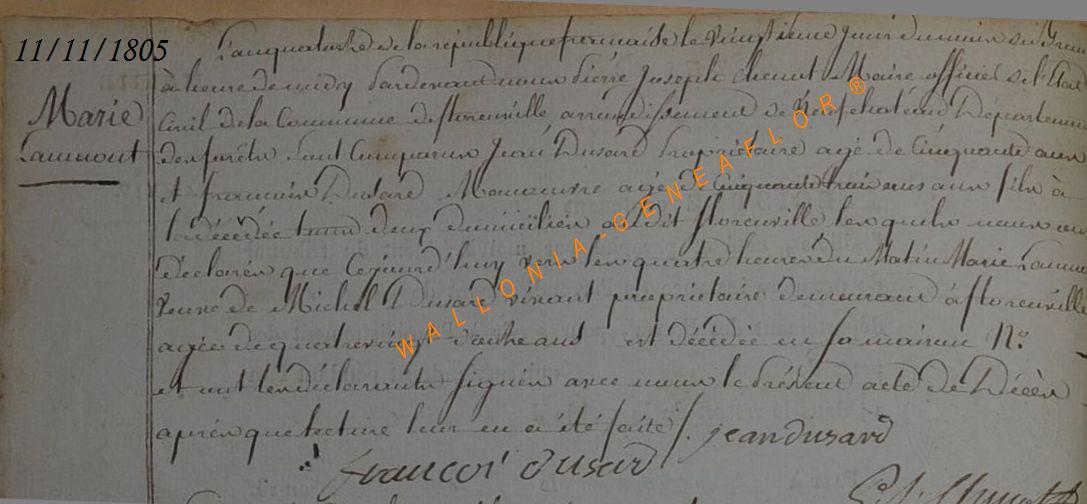 11/11/1805
Marie
Laurent
L'an quatorze de la république française le vingtième jour du mois de Brum
à heure de midy pardevant nous Pierre Joseph Maire officier de l'État
Civil de la Commune de florenville arrondissement de Neufchateau Département
des forêts sont Comparus Jean Dusard propriétaire agé de Cinquante ans
et francois Dusard Manœuvre agé de Cinquante trois ans aux fils à
la décédée tous deux domiciliés audit florenville lesquels nous ont
déclarés que Cejourd'huy vers les quatre heures du Matin Marie
veuve de Michel Dusard vivant propriétaire demeurant à florenville
agée de quatrevingt ans est décédée en sa maison N°
et ont les déclarants signés avec nous le présent acte de Décès
après que lecture leur en a été faite /. jean dusard
francoi dusard
WALLONIA-GENEAFLOR®